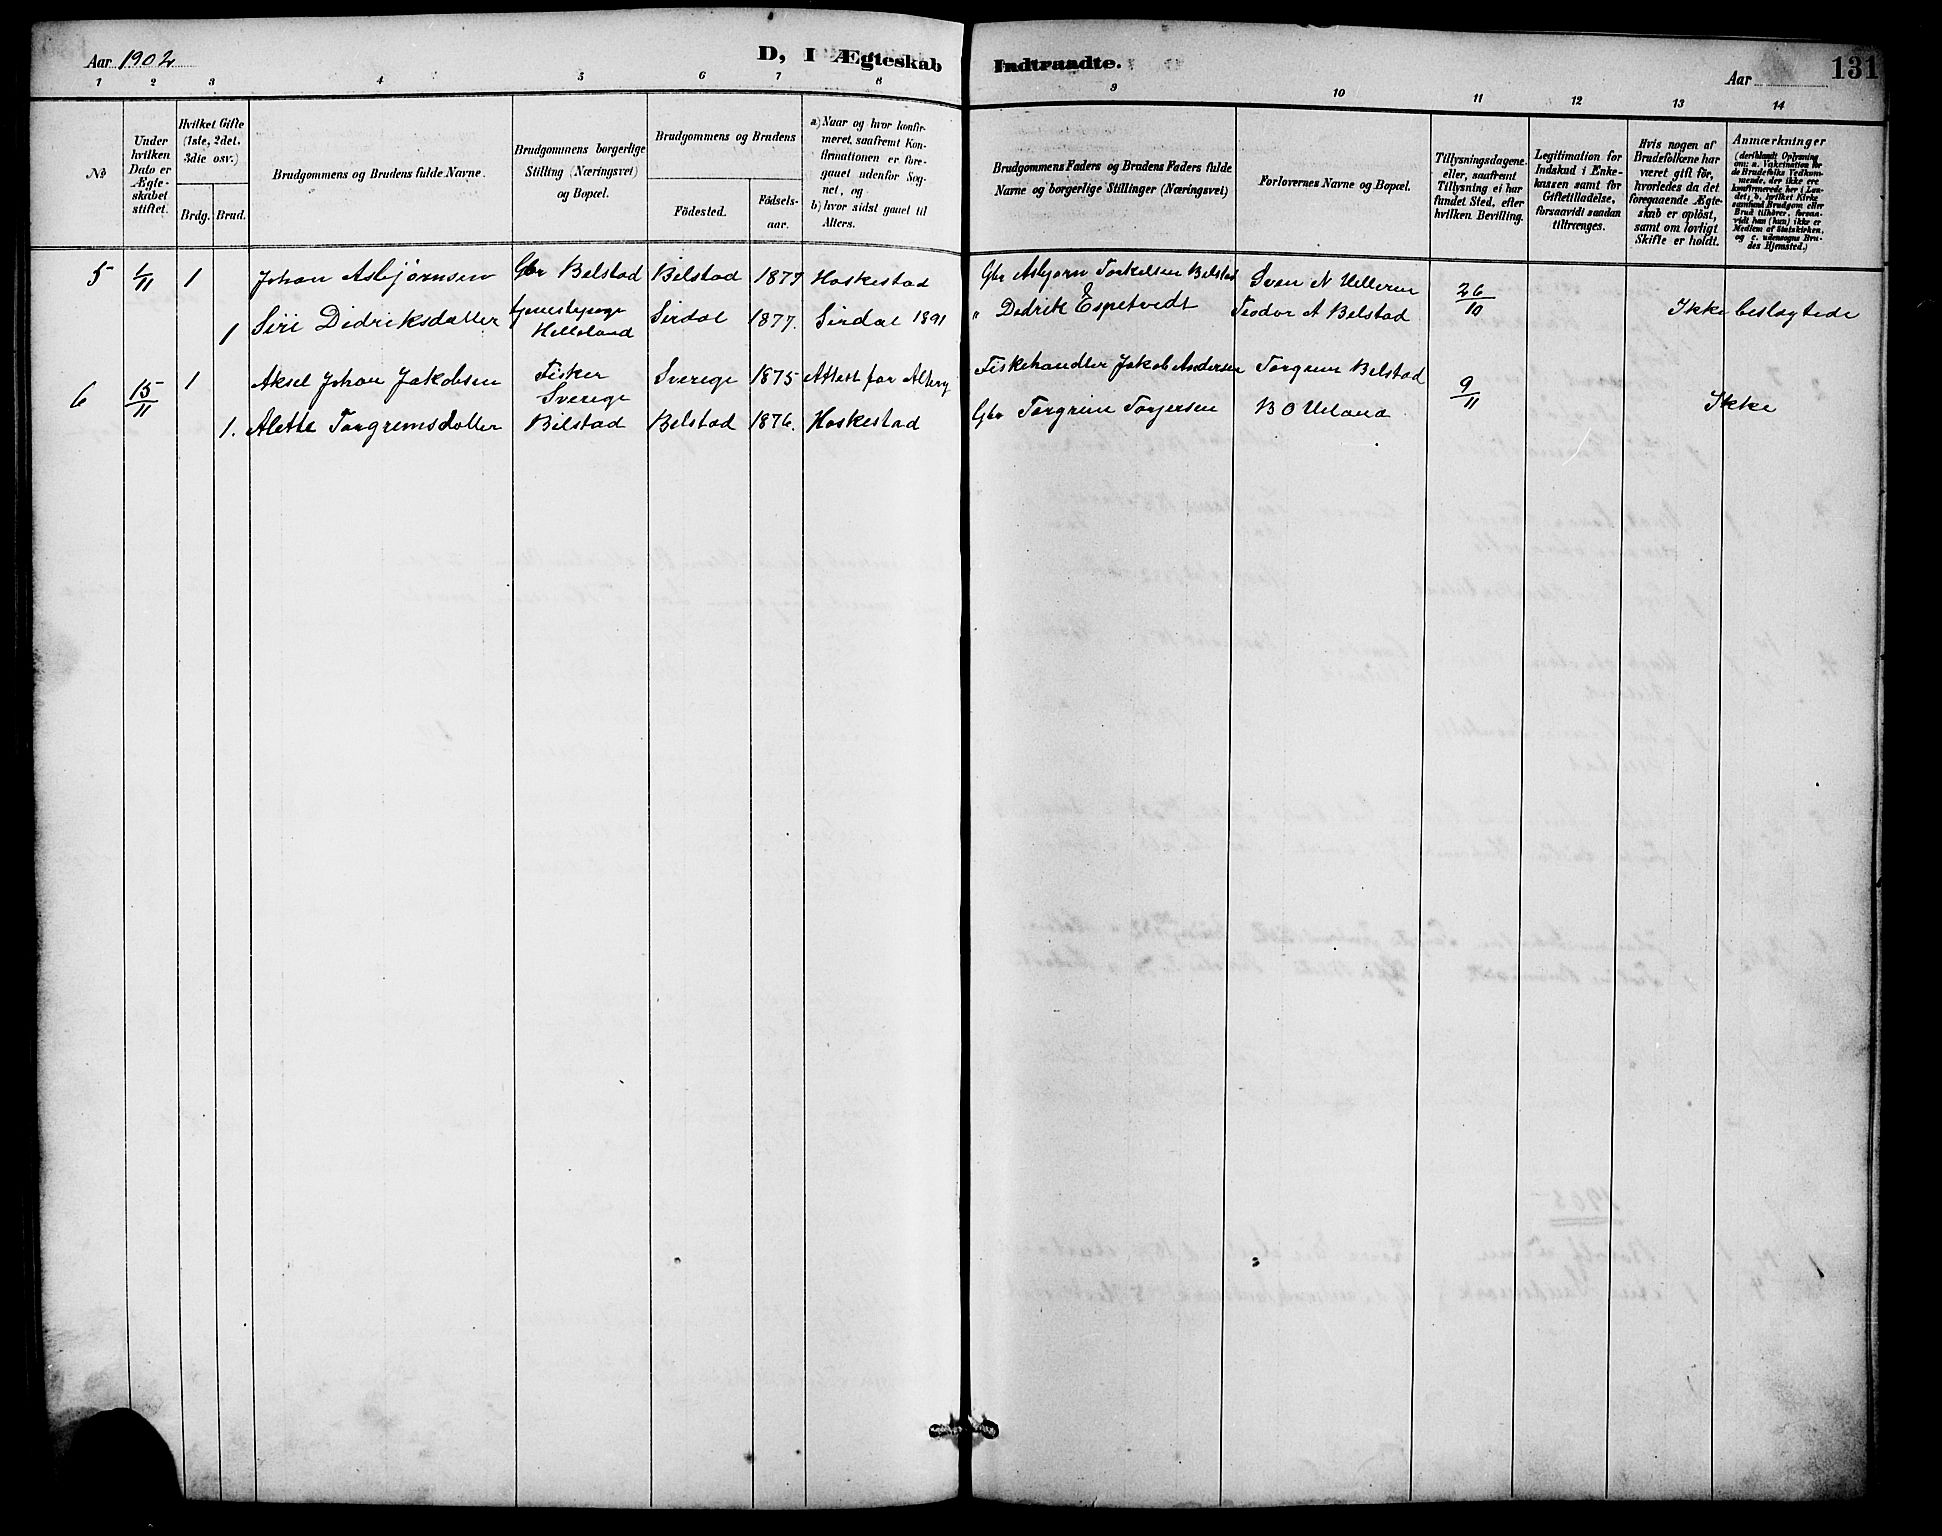 Aar 1902
D, I Ægteskab Indtraadte.
Aar
131
1 2 3 4 5 6 7 8 9 10 11 12 13 14
No
Under hvilken Dato er Ægteskabet stiftet.
Hvilket Gifte (1ste, 2det, 3die osv.)
Brdg. Brud.
Brudgommens og Brudens fulde Navne.
Brudgommens borgerlige Stilling (Næringsvei) og Bopæl.
Brudgommens og Brudens
Födested.
Födselsaar.
a) Naar og hvor konfirmeret, saafremt Konfirmationen er foregaaet udenfor Sognet, og
b) hvor sidst gaaet til Alters.
Brudgommens Faders og Brudens Faders fulde Navne og borgerlige Stillinger (Næringsvei)
Forlovernes Navne og Bopæl.
Tillysningsdagene, eller, saafremt Tillysning ei har fundet Sted, efter hvilken Bevilling.
Legitimation for Indskud i Enkekassen samt for Giftetilladelse, forsaavidt saadan tiltrænges.
Hvis nogen af Brudefolkene har været gift för, hvorledes da det foregaaende Ægteskab er oplöst, samt om lovligt Skifte er holdt.
Anmærkninger
(deriblandt Oplysning om: a. Vakcination for de Brudefolks Vedkommende, der ikke ere konfirmerede her i Landet; b. hvilket Kirkesamfund Brudgom eller Brud tilhörer, forsaavidt han (hun) ikke er Medlem af Statskirken, og c. udensogns Brudes Hjemsted.)
5 1/11 1 Johan Asbjørnsen Gbr Belstad Belstad 1879 Heskestad Gbr Asbjørn Torkelsen Belstad Sven N Ueleren 26/10
1 Siri Didriksdatter Helleland Sirdal 1877. Sirdal 1891 " Didrik E Espetvedt Teodor A Belstad Ikke beslægtede
6 15/11 1 Aksel Johan Jakobsen Fisker Sverige Sverige 1875 Attest for Alterg Fiskehandler Jakob Andersen Torgrim Belstad 9/11
1. Alette Torgrimsdatter Belstad Belstad 1876. Heskestad Gbr Torgrim Torjersen B O Ueland Ikke